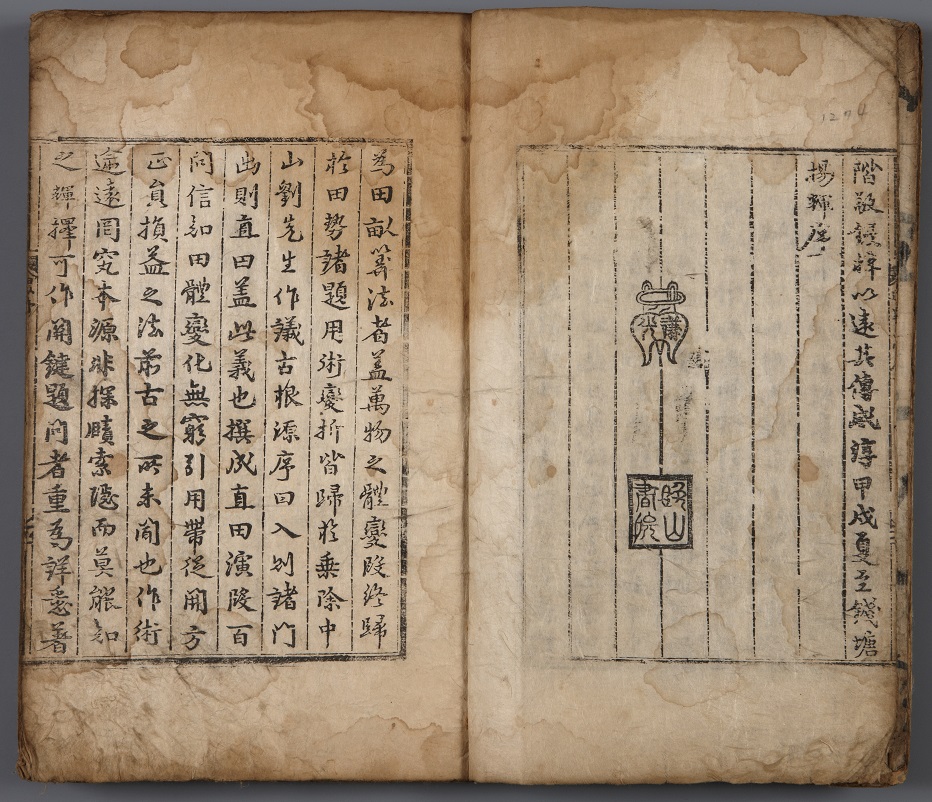 1274
階敬鋟梓以遠其傳咸淳甲戌夏至錢塘
揚輝序
書院
為田畝筭法者盖萬物之體變叚終歸
於田勢諸題用術變折皆歸於乗除中
山劉先生作議古根源序曰入則諸門
出則直田盖此義也撰成直田演叚百
問信知田體變化無窮引用帶從開方
正負損益之法前古之所未聞也作術
逾遠罔究本源非探賾索隱而莫能知
之輝擇可作関鍵題問者重為詳悉著